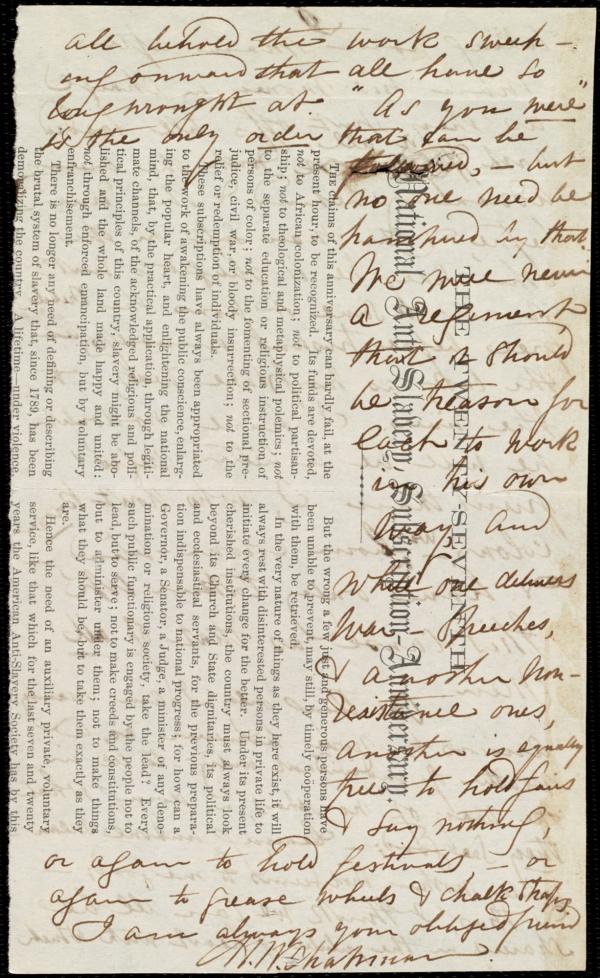 all behold the work sweep-
ing onward that all have so
long wrought at. "As you were"
is the only order that can be
followed, - but
no one need be
hampered by that.
We were never
a regiment
that it should
be treason for
each to work
in his own
way. And
while one delivers
war - speeches,
& another Non-
resistance ones,
another is equally
free to hold fairs
& say nothing,
or again to hold festivals, - or
again to grease wheels & chalk
I am always your obliged friend
M. W. Chapman.
THE TWENTY-SEVENTH
National Anti-Slavery Subscription-Anniversary.
THE claims of this anniversary can hardly fail, at the
present hour, to be recognized. Its funds are devoted,
not to African colonization; not to political partisan-
ship; not to theological and metaphysical polemics; not
to the separate education or religious instruction of
persons of color; not to the fomenting of sectional pre-
judice, civil war, or bloody insurrection; not to the
relief or redemption of individuals.
These subscriptions have always been appropriated
to the work of awakening the public conscience, enlarg-
ing the popular heart, and enlightening the national
mind, that, by the practical application, through legiti-
mate channels, of the acknowledged religious and poli-
tical principles of this country, slavery might be abo-
lished and the whole land made happy and united:
not through enforced emancipation, but by voluntary
enfranchisement.
There is no longer any need of defining or describing
the brutal system of slavery that, since 1789, has been
demoralizing the country. A lifetime—under violence
But the wrong a few just and generous persons have
been unable to prevent, may still, by timely coöperation
with them, be retrieved.
In the very nature of things as they here exist, it will
always rest with disinterested persons in private life to
initiate every change for the better. Under its present
cherished institutions, the country must always look
beyond its Church and State dignitaries, its political
and ecclesiastical servants, for the previous prepara-
tion indispensable to national progress; for how can a
Governor, a Senator, a Judge, a minister of any deno-
mination or religious society, take the lead? Every
such public functionary is engaged by the people not to
lead, but to serve; not to make creeds and constitutions,
but to administer under them; not to make things
what they should be, but to take them exactly as they
are.
Hence the need of an auxiliary private, voluntary
service, like that which for the last seven and twenty
years the American Anti-Slavery Society has by this